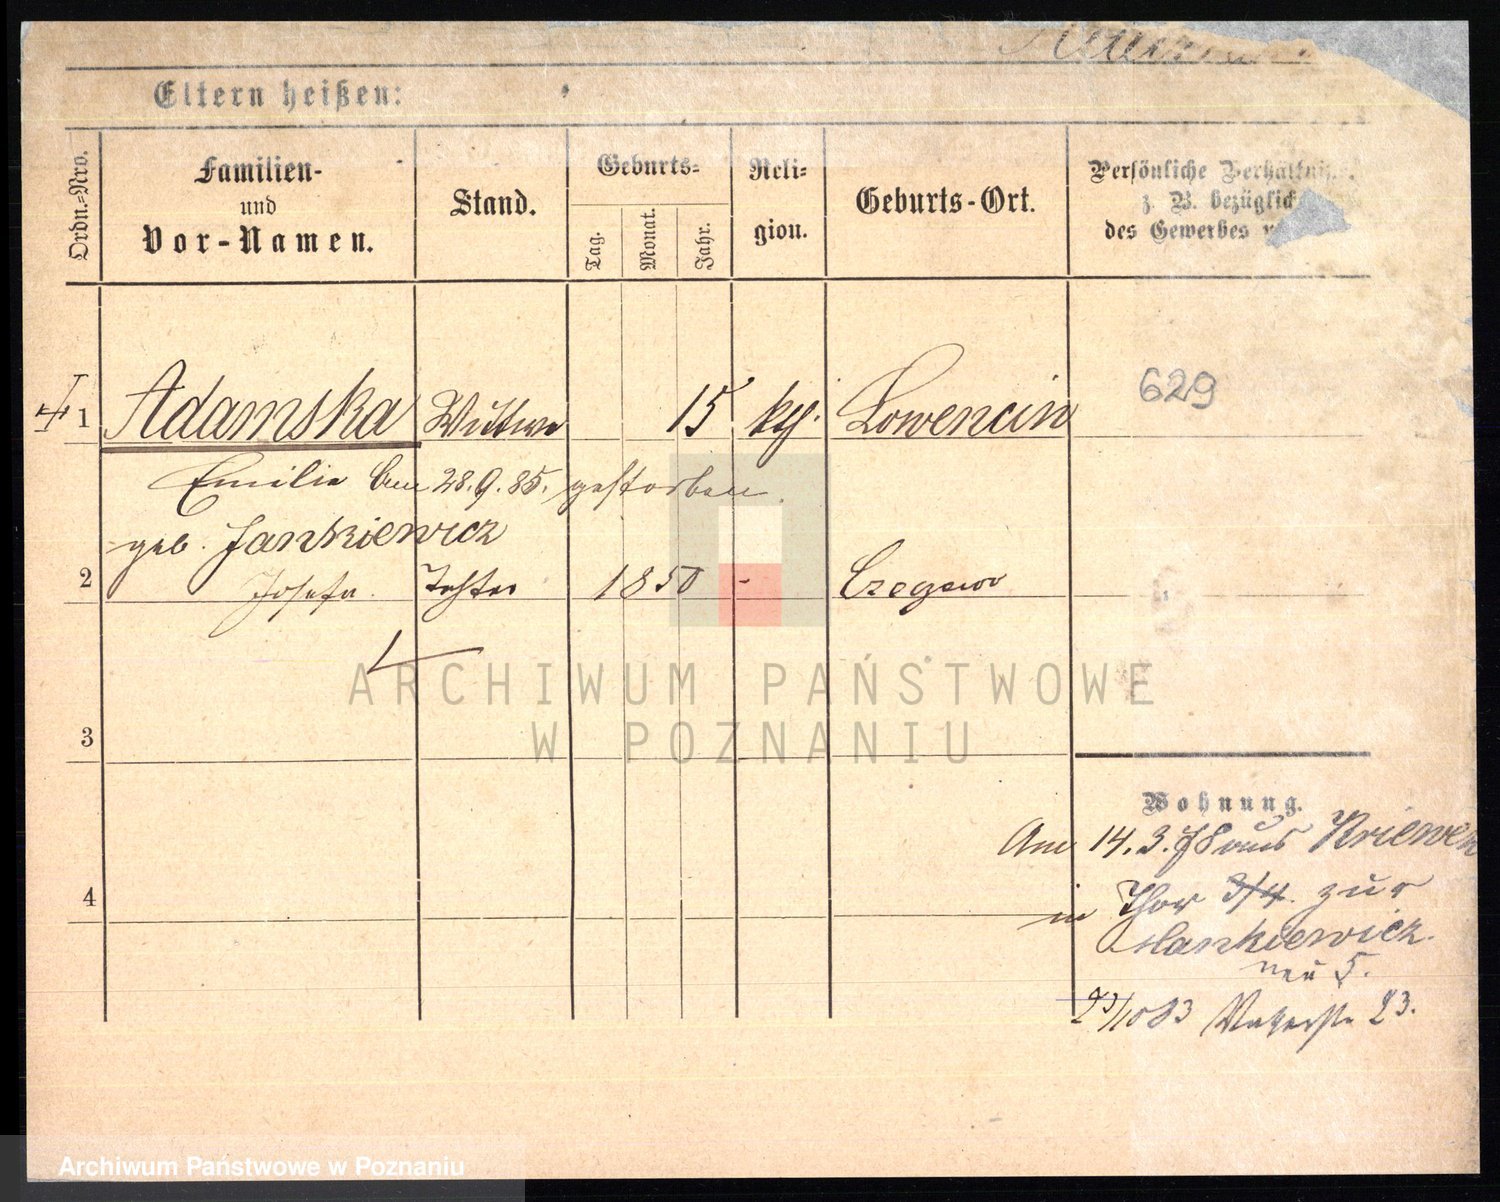 Eltern heißen:
Ordn.-Nro.
Familien-
und
Vor-Namen.
Stand.
Geburts-
Tag.
Monat.
Jahr.
Reli-
gion.
Geburts-Ort.
Persönliche Verhältni
z. B. bezüglich
des Gewerbes
1 Adamska Wittwe 15 ktl. Lowencin
629
Emilie am 28.9.85. gestorben.
geb. Jankiewicz
2 Josefa. Tochter 1850 -
3
Wohnung.
Am 14.3.78 aus Kriewen
4
in Thor 3/4. zur
Hankiewicz.
neu 5.
23/10 83 23.
ARCHIWUM PAŃSTWOWE
W POZNANIU
Archiwum Państwowe w Poznaniu